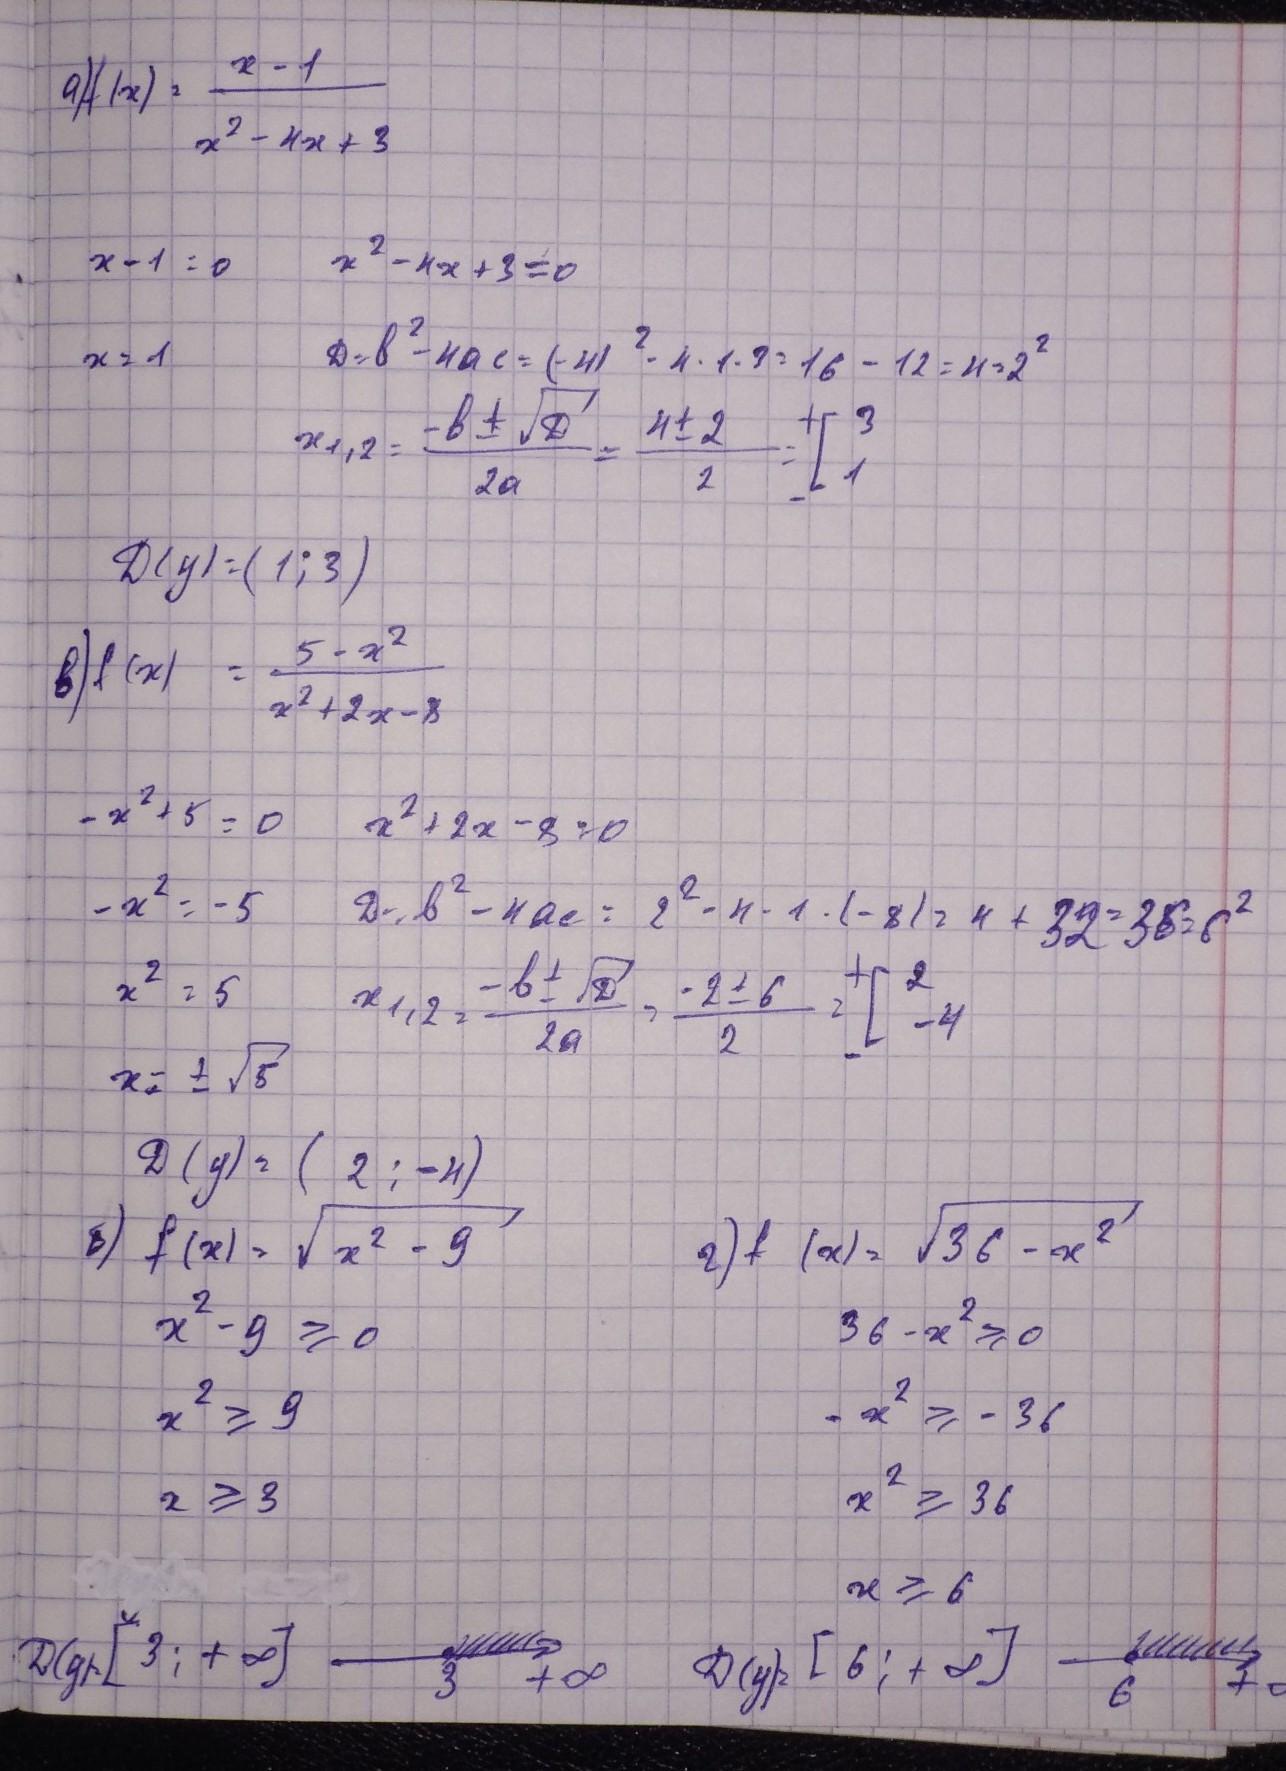 а) f(x) = (x - 1)/(x² - 4x + 3)
x - 1 = 0   x² - 4x + 3 = 0
x = 1   D = b² - 4ac = (-4)² - 4 · 1 · 3 = 16 - 12 = 4 = 2²
x₁,₂ = (-b ± √D)/2a = (4 ± 2)/2 = + [ 3
- [ 1
D(y) = (1; 3)
в) f(x) = (5 - x²)/(x² + 2x - 8)
-x² + 5 = 0   x² + 2x - 8 = 0
-x² = -5   D = b² - 4ac = 2² - 4 · 1 · (-8) = 4 + 32 = 36 = 6²
x² = 5   x₁,₂ = (-b ± √D)/2a = (-2 ± 6)/2 = + [ 2
- [ -4
x = ± √5
D(y) = (2; -4)
б) f(x) = √(x² - 9)   г) f(x) = √(36 - x²)
x² - 9 ≥ 0   36 - x² ≥ 0
x² ≥ 9   -x² ≥ -36
x ≥ 3   x² ≥ 36
x ≥ 6
D(y) = [3; +∞]   3   +∞   D(y) = [6; +∞]   6   +∞